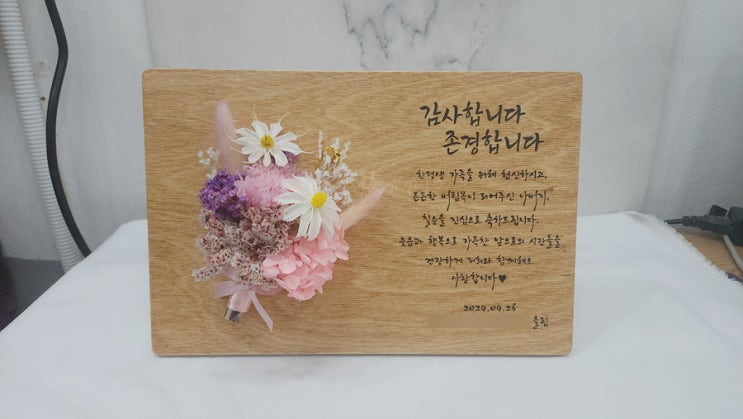 감사합니다
존경합니다
한평생 가족을 위해 헌신하시고,
든든한 버팀목이 되어주신 아버지,
칠순을 진심으로 축하드립니다.
웃음과 행복으로 가득찬 앞으로의 시간들을
건강하게 저희와 함께해요
사랑합니다♥
2024.04.26
올림